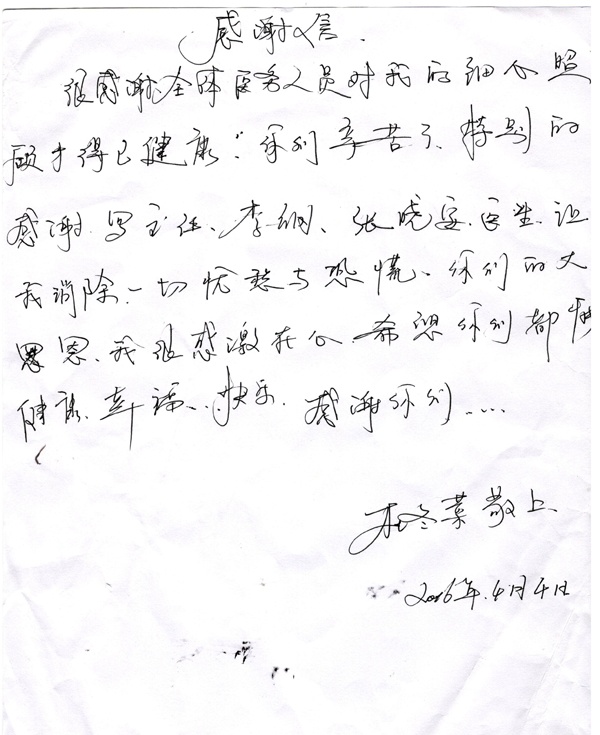 感谢信.
很感谢全体医务人员对我的细心照
顾才得已健康. 你们辛苦了、特别的
感谢 主任、李纲、张晓宴 医生 让
我消除一切忧愁与恐慌、你们的大
恩、我很感激在心、希望你们都
健康、幸福、快乐. 感谢你们.....
杜冬菜敬上
2016年.4月4日